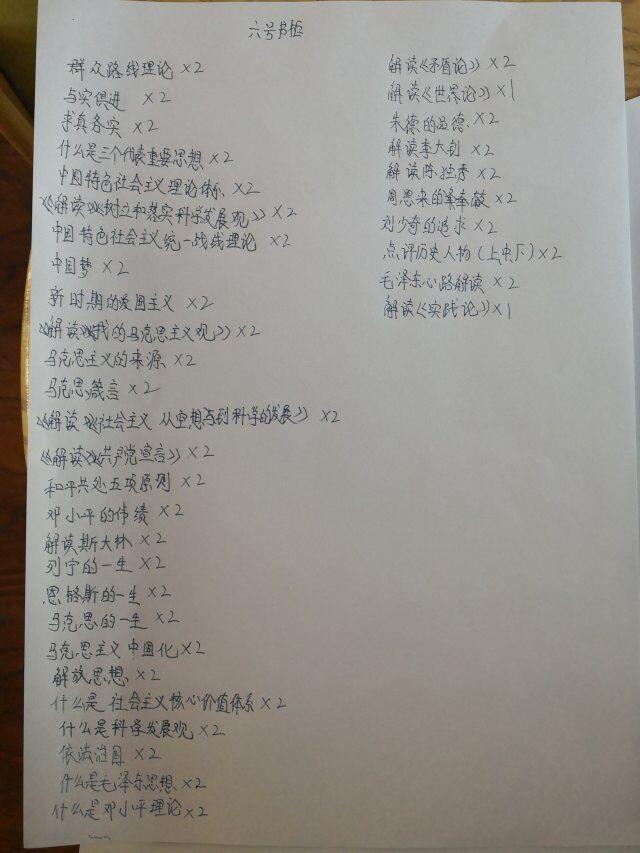 六号书柜
群众路线理论 ×2
与实俱进 ×2
求真务实 ×2
什么是三个代表重要思想 ×2
中国特色社会主义理论体系 ×2
《解读》《树立和落实科学发展观》×2
中国特色社会主义统一战线理论 ×2
中国梦 ×2
新时期的爱国主义 ×2
《解读》《我的马克思主义观》×2
马克思主义的来源 ×2
马克思箴言 ×2
《解读》《社会主义 从空想到科学的发展》 ×2
《解读》《共产党宣言》×2
和平共处五项原则 ×2
邓小平的伟绩 ×2
解读斯大林 ×2
列宁的一生 ×2
恩格斯的一生 ×2
马克思的一生 ×2
马克思主义中国化 ×2
解放思想 ×2
什么是社会主义核心价值体系 ×2
什么是科学发展观 ×2
依法治国 ×2
什么是毛泽东思想 ×2
什么是邓小平理论 ×2
解读《矛盾论》×2
解读《世界论》×1
朱德的品德 ×2
解读李大钊 ×2
解读陈独秀 ×2
周恩来的 ×2
刘少奇的追求 ×2
点评历史人物(上中下)×2
毛泽东心路解读 ×2
解读《实践论》×1